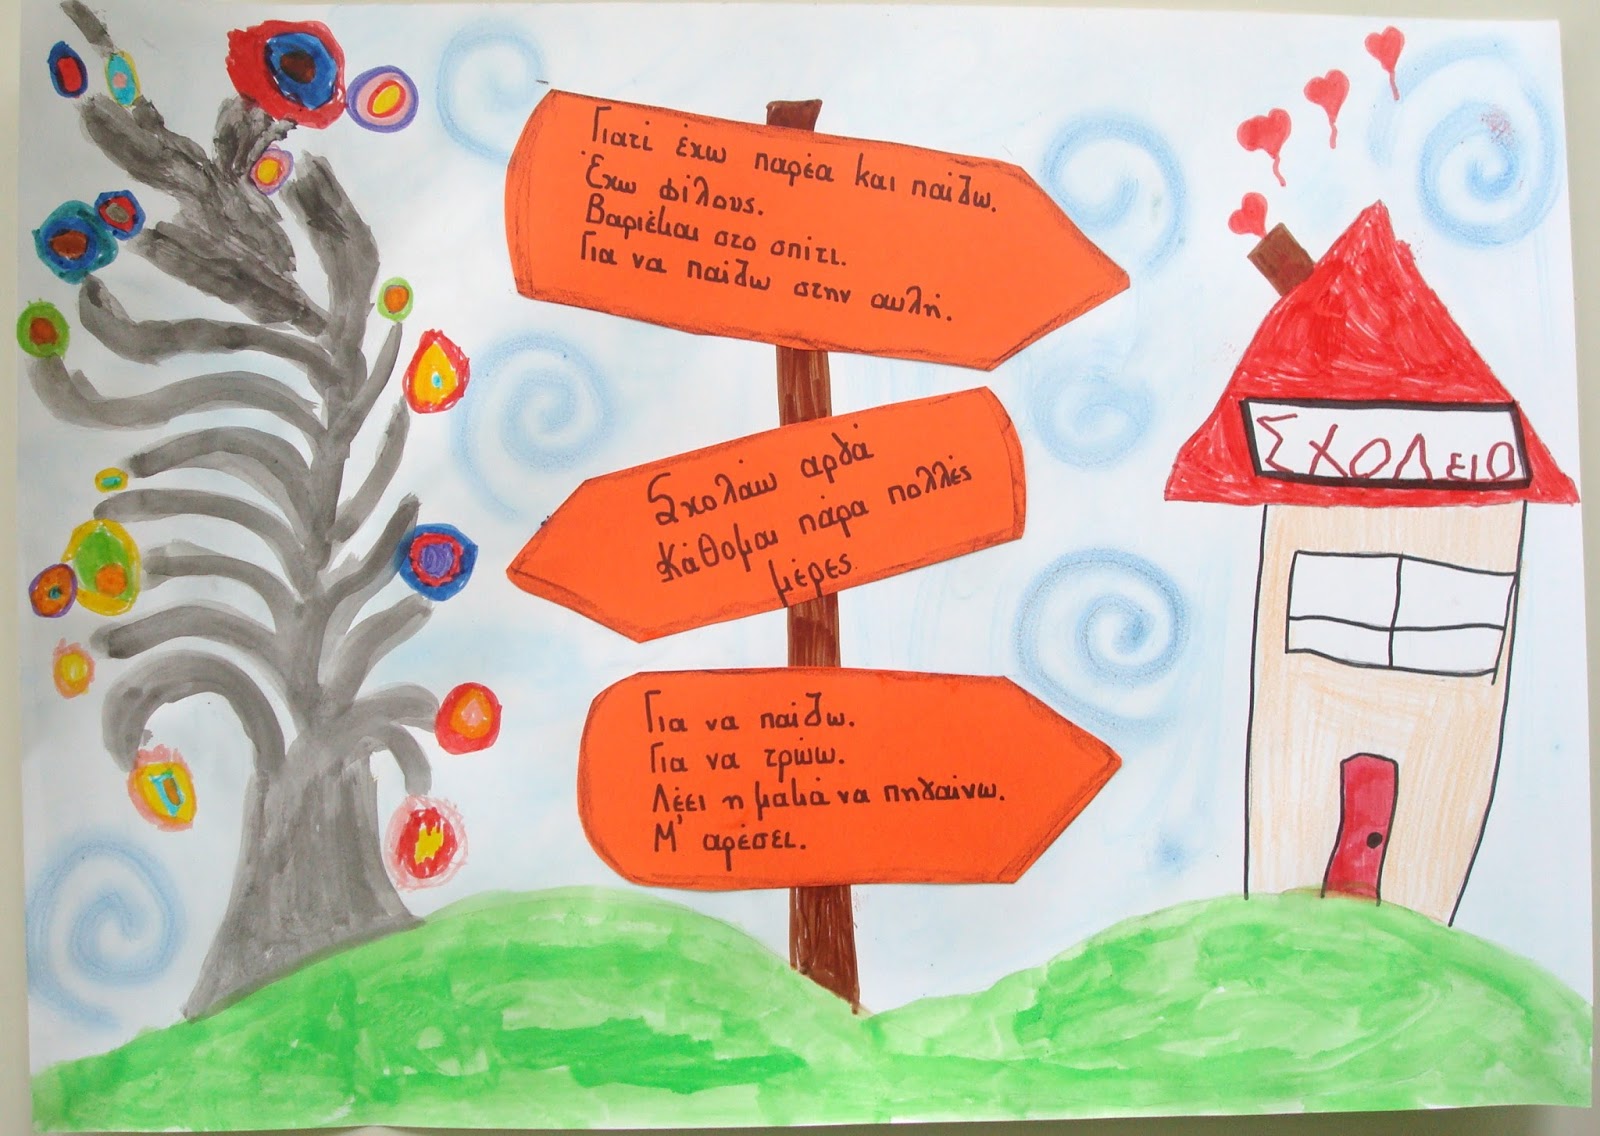 Γιατί έχω παρέα και παίζω.
Έχω φίλους.
Βαριέμαι στο σπίτι.
Για να παίζω στην αυλή.
Σχολάω αργά
Κάθομαι πάρα πολλές
μέρες.
Για να παίζω.
Για να τρώω.
Λέει η μαμά να πηγαίνω.
Μ' αρέσει.
ΣΧΟΛειο